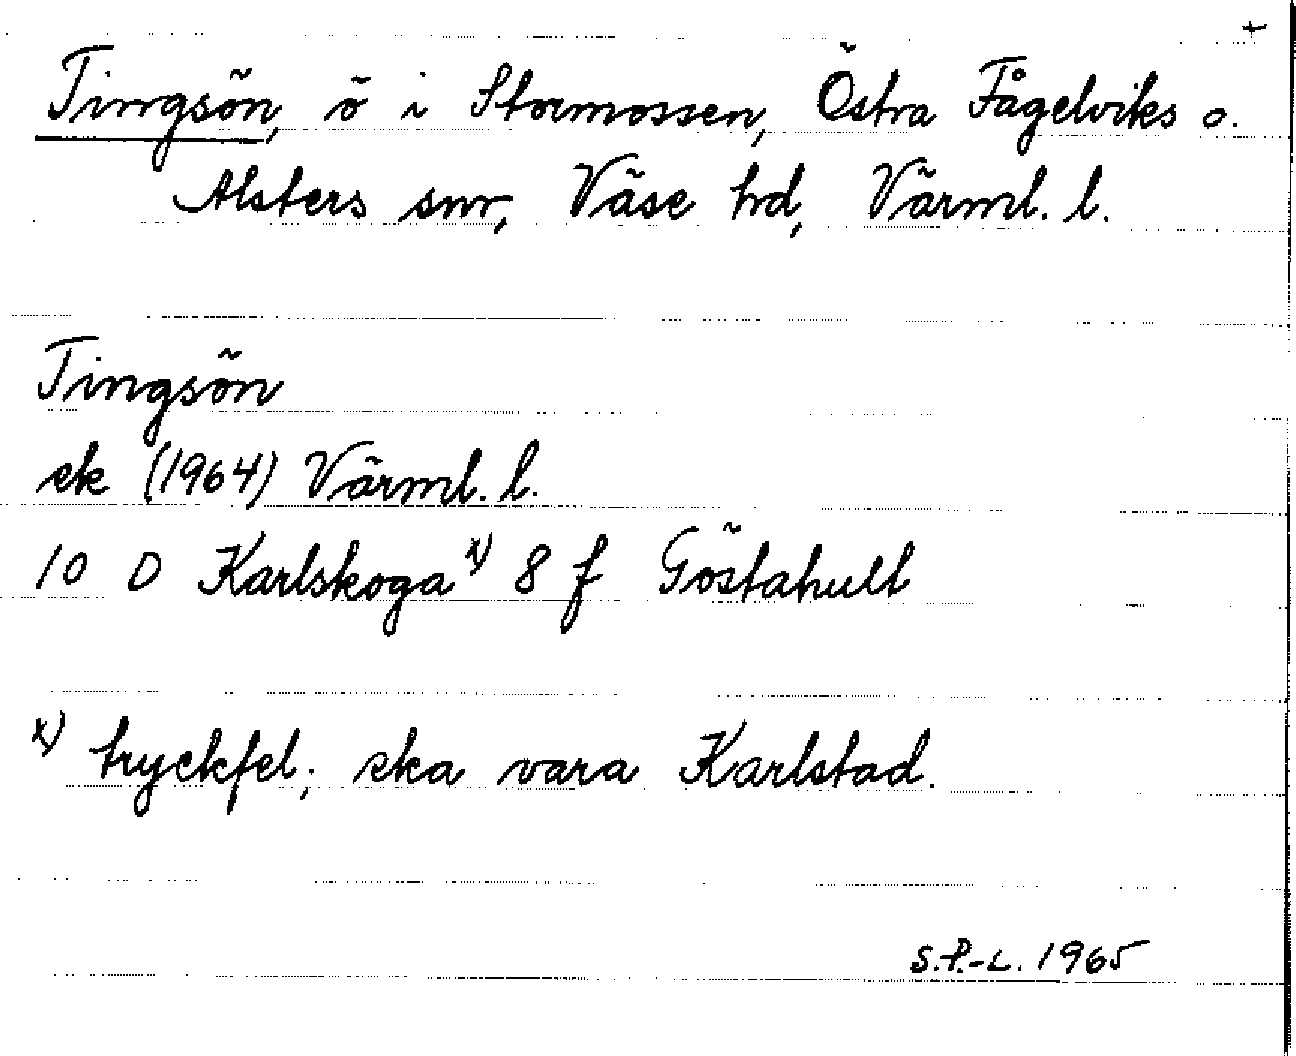 +
Tingsön, ö i Stormossen, Östra Fågelviks o.
Alsters snr, Väse hd, Värml. l.
Tingsön
ek (1964) Värml. l.
10 D Karlskoga x) 8 f Göstahult
x) tryckfel; ska vara Karlstad.
S.P.-L. 1965